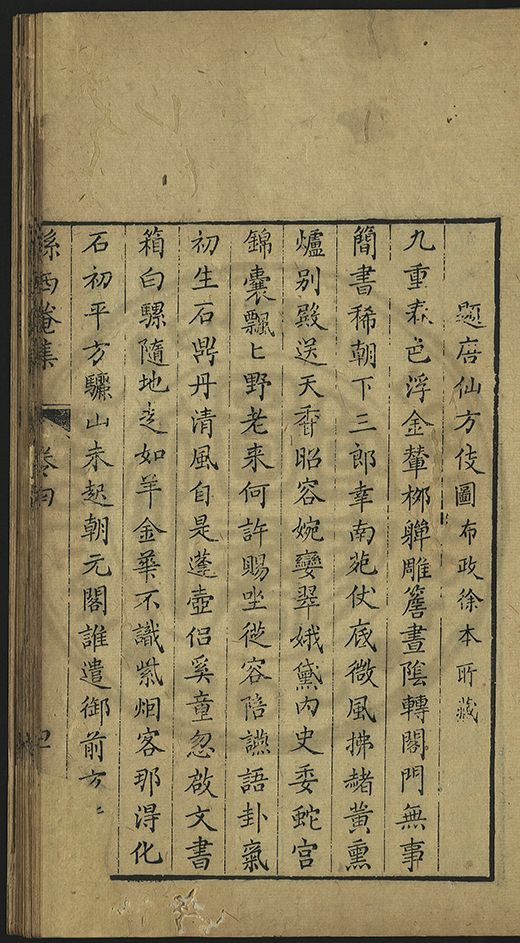 題唐仙方伎圖 布政徐本所藏
九重春色浮金輦桞嚲雕簷晝陰轉閣門無事
簡書稀朝下三郎幸南苑仗底微風拂赭黃熏
爐别殿送天香昭容婉孌翠娥黛内史委蛇宫
錦囊飄〻野老来何許賜坐從容陪讌語卦氣
初生石鼎丹清風自是蓬壺侣奚童忽啟文書
箱白騾隨地走如羊金華不識紫烟客那得化
石初平方驪山未起朝元閣誰遣御前方
孫西菴集 卷四